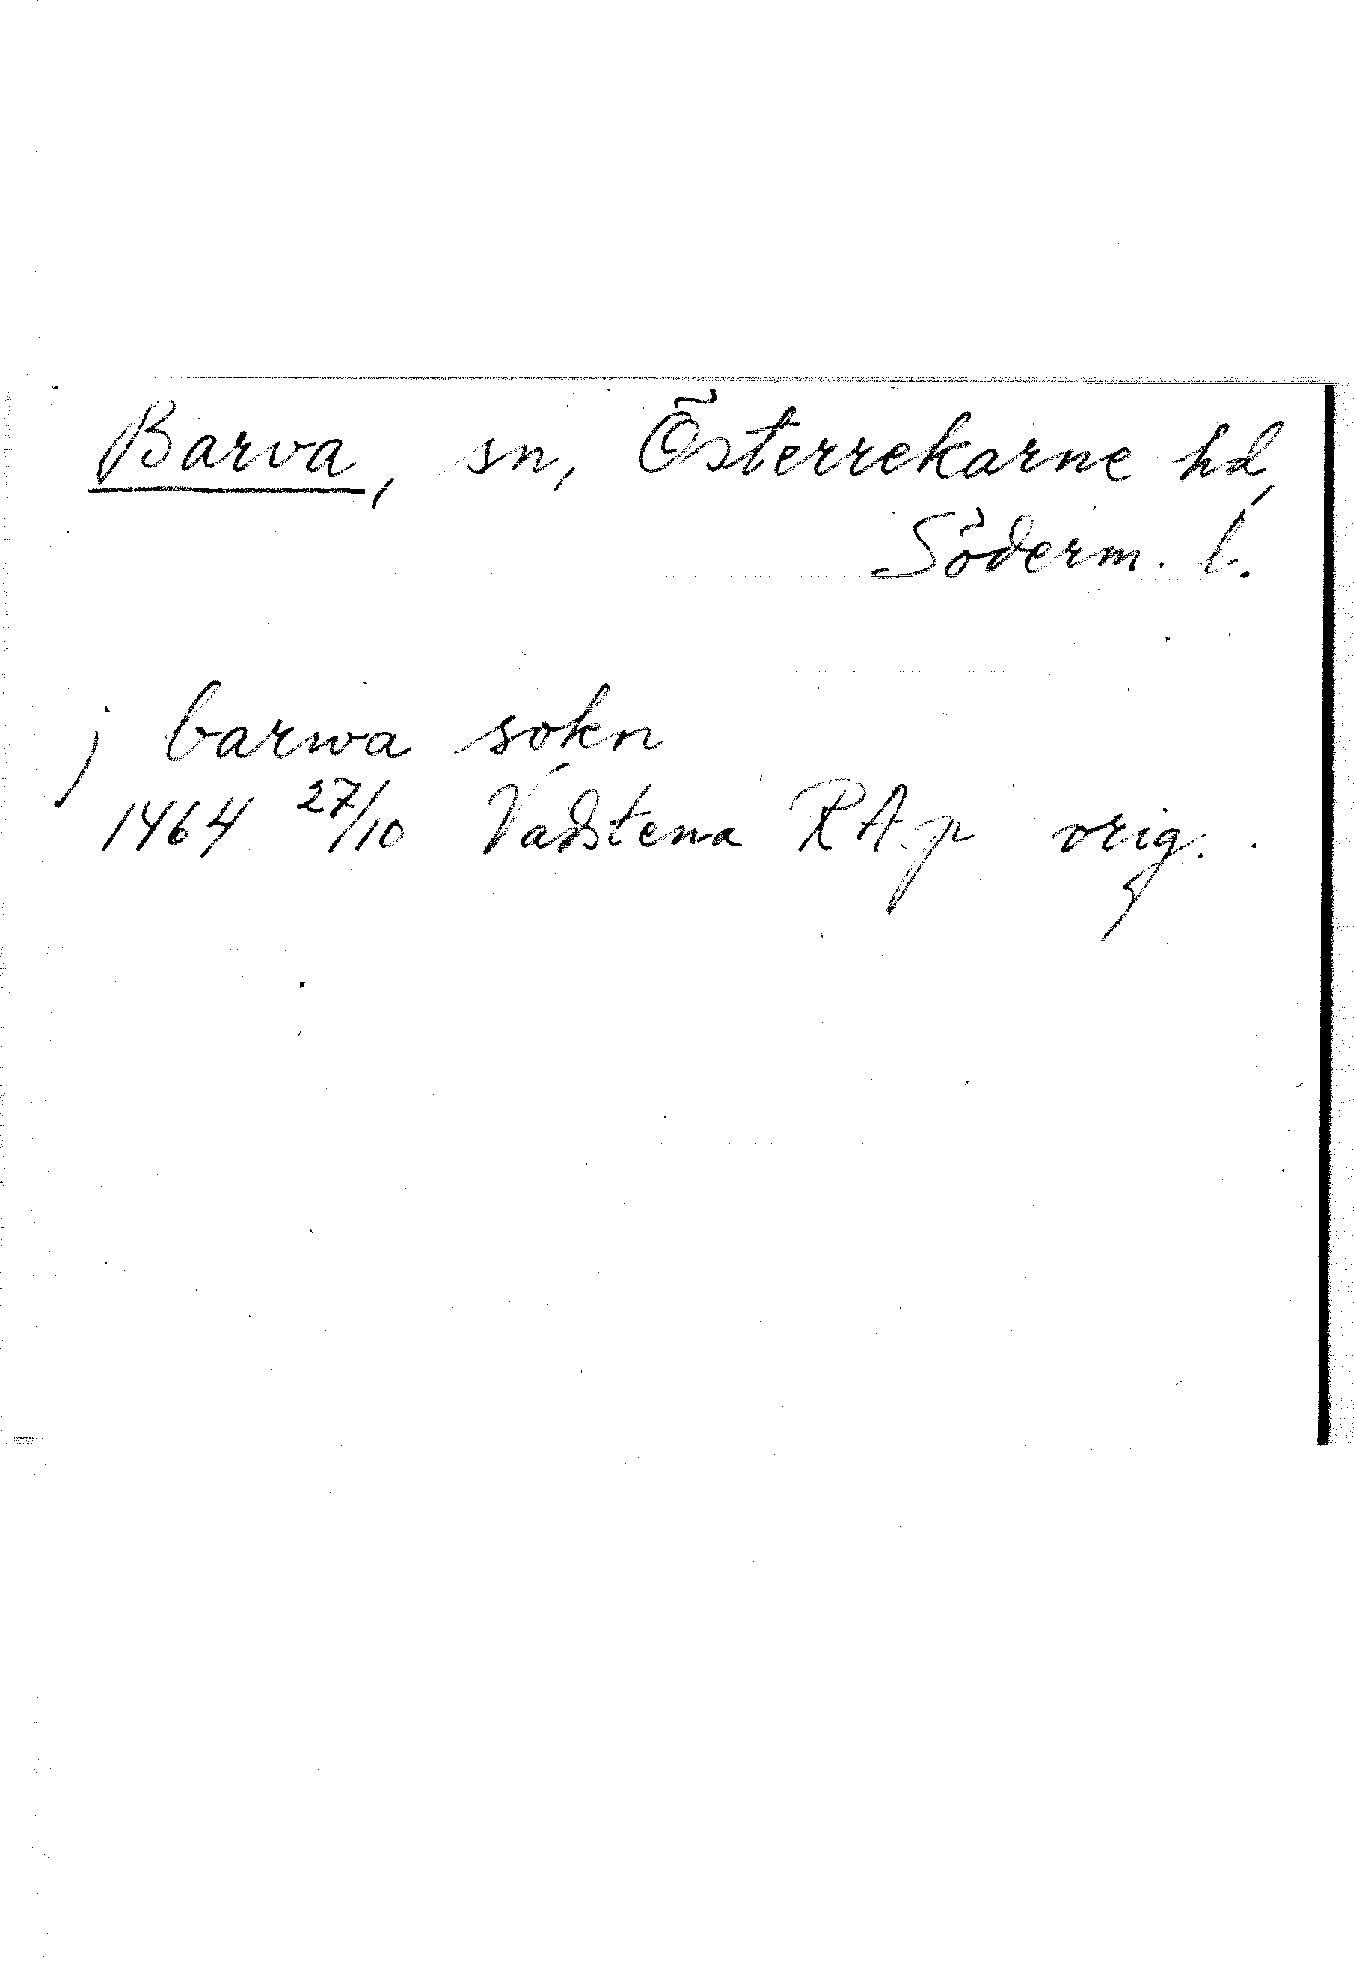 Barva, sn, Österrekarne hd,
Söderm. l.
j barwa sokn
1464 27/10 Vadstena RA.p orig.